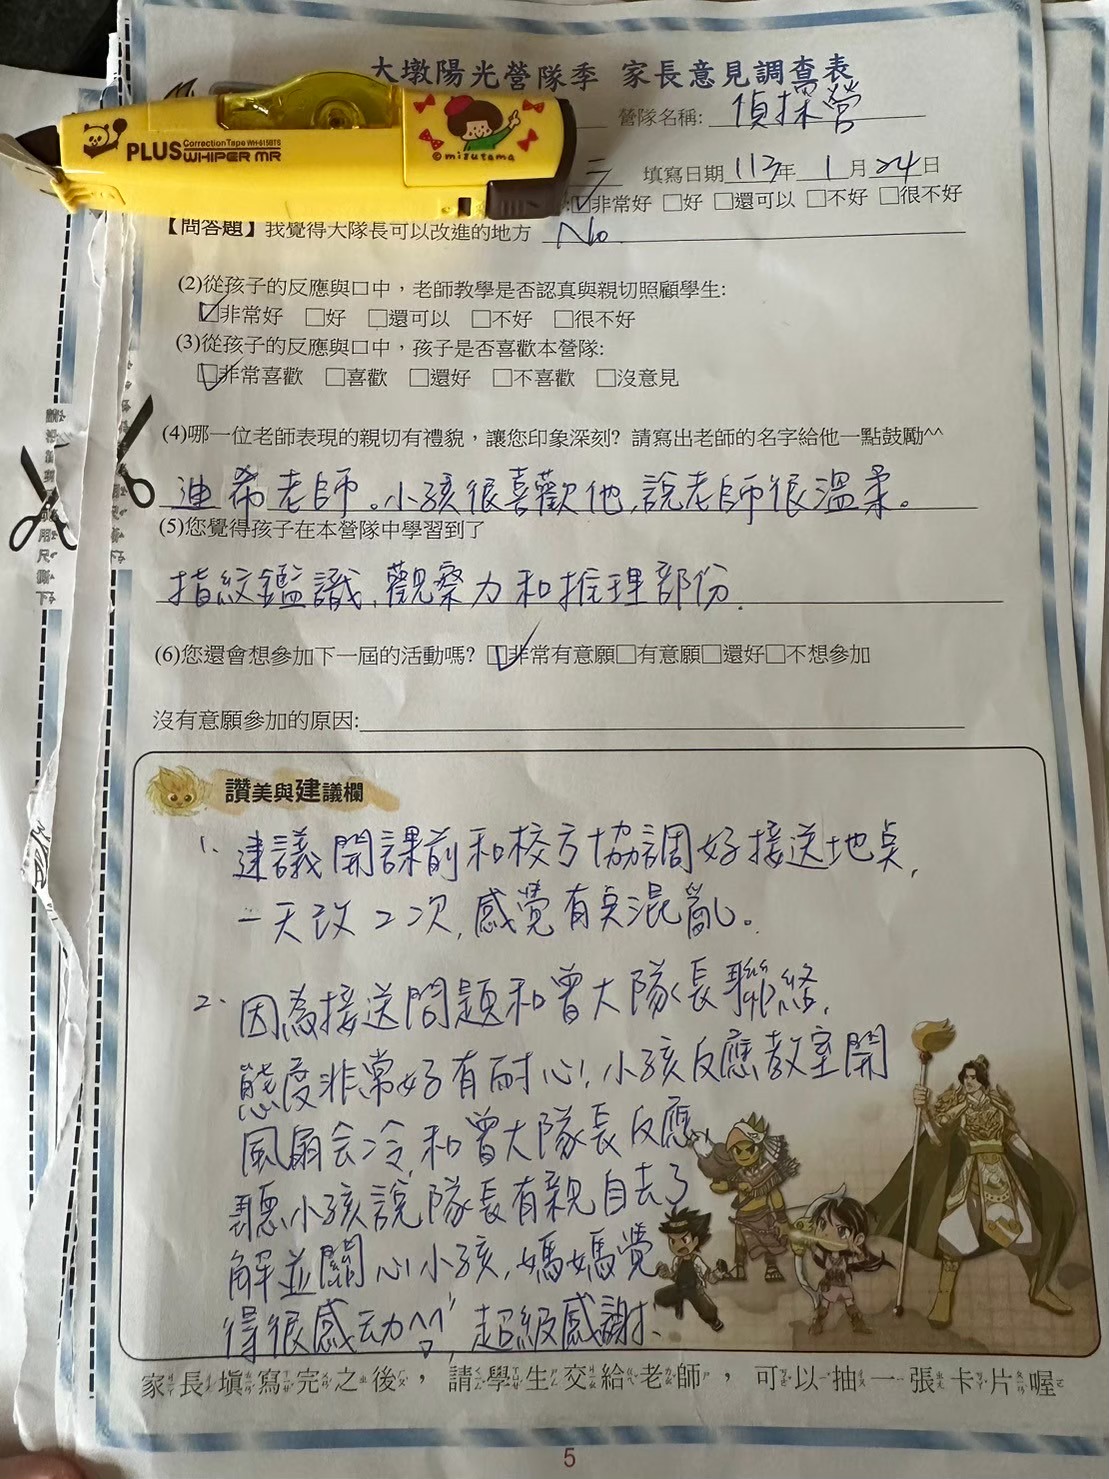 大墩陽光營隊季 家長意見調查表
營隊名稱: 偵探營
填寫日期 113年 1月 24日
☑非常好 □好 □還可以 □不好 □很不好
【問答題】我覺得大隊長可以改進的地方 No.
(2)從孩子的反應與口中,老師教學是否認真與親切照顧學生:
☑非常好 □好 □還可以 □不好 □很不好
(3)從孩子的反應與口中,孩子是否喜歡本營隊:
☑非常喜歡 □喜歡 □還好 □不喜歡 □沒意見
(4)哪一位老師表現的親切有禮貌,讓您印象深刻? 請寫出老師的名字給他一點鼓勵^^
迪希老師。小孩很喜歡他,說老師很溫柔。
(5)您覺得孩子在本營隊中學習到了
指紋鑑識、觀察力和推理部份.
(6)您還會想參加下一屆的活動嗎? ☑非常有意願□有意願□還好□不想參加
沒有意願參加的原因:
讚美與建議欄
1. 建議開課前和校方協調好接送地點,
一天改2次,感覺有點混亂。
2. 因為接送問題和曾大隊長聯絡,
態度非常好有耐心!小孩反應教室開
風扇会冷,和曾大隊長反應,
聽小孩說隊長有親自去了
解並關心小孩,媽媽覺
得很感动^^,超級感謝!
家長填寫完之後,請學生交給老師,可以抽一張卡片喔
5
PLUS Correction Tape WH-615BTS
WHIPER MR
©mizutama